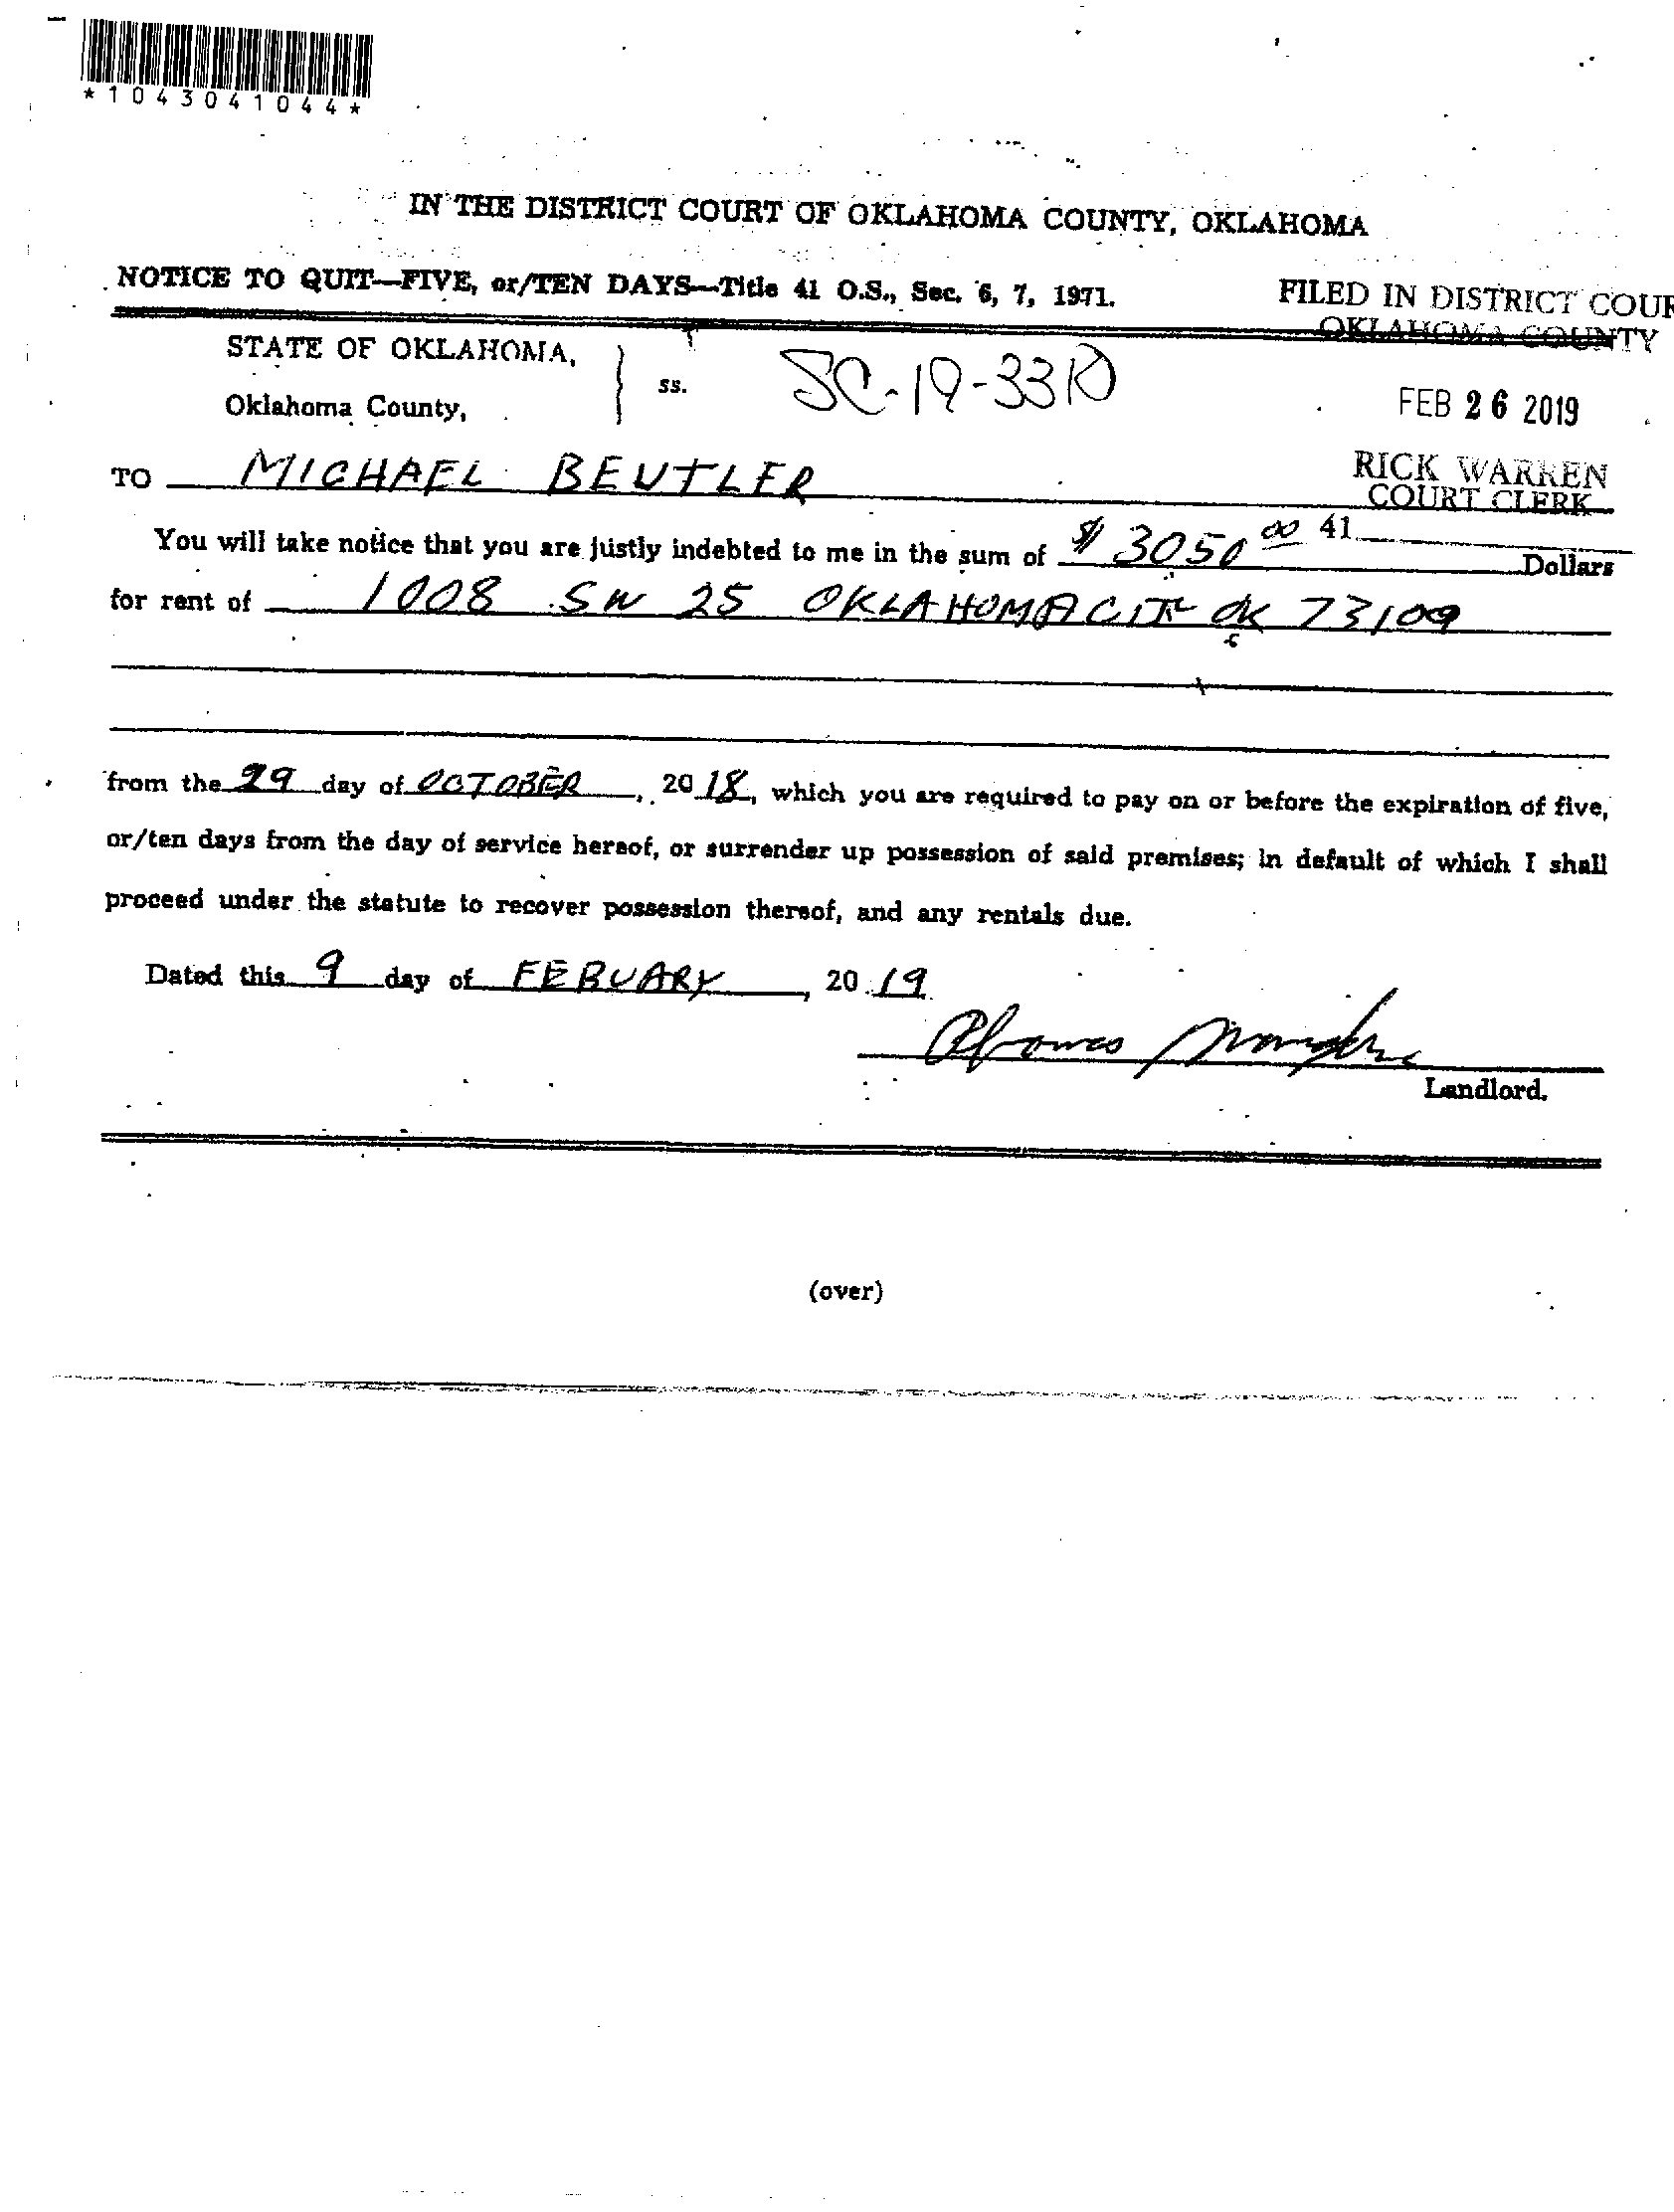 *1043041044*
IN THE DISTRICT COURT OF OKLAHOMA COUNTY, OKLAHOMA
NOTICE TO QUIT—FIVE, or/TEN DAYS—Title 41 O.S., Sec. 6, 7, 1971.
FILED IN DISTRICT COUR
OKLAHOMA COUNTY
STATE OF OKLAHOMA,
Oklahoma County,
ss.
SC-19-33
FEB 26 2019
RICK WARREN
COURT CLERK
41
TO MICHAEL BEUTLER
You will take notice that you are justly indebted to me in the sum of $ 3050 00 Dollars
for rent of 1008 SW 25 OKLAHOMA CITY OK 73109
from the 29 day of OCTOBER, 2018, which you are required to pay on or before the expiration of five,
or/ten days from the day of service hereof, or surrender up possession of said premises; in default of which I shall
proceed under the statute to recover possession thereof, and any rentals due.
Dated this 9 day of FEBUARY, 2019
Landlord.
(over)